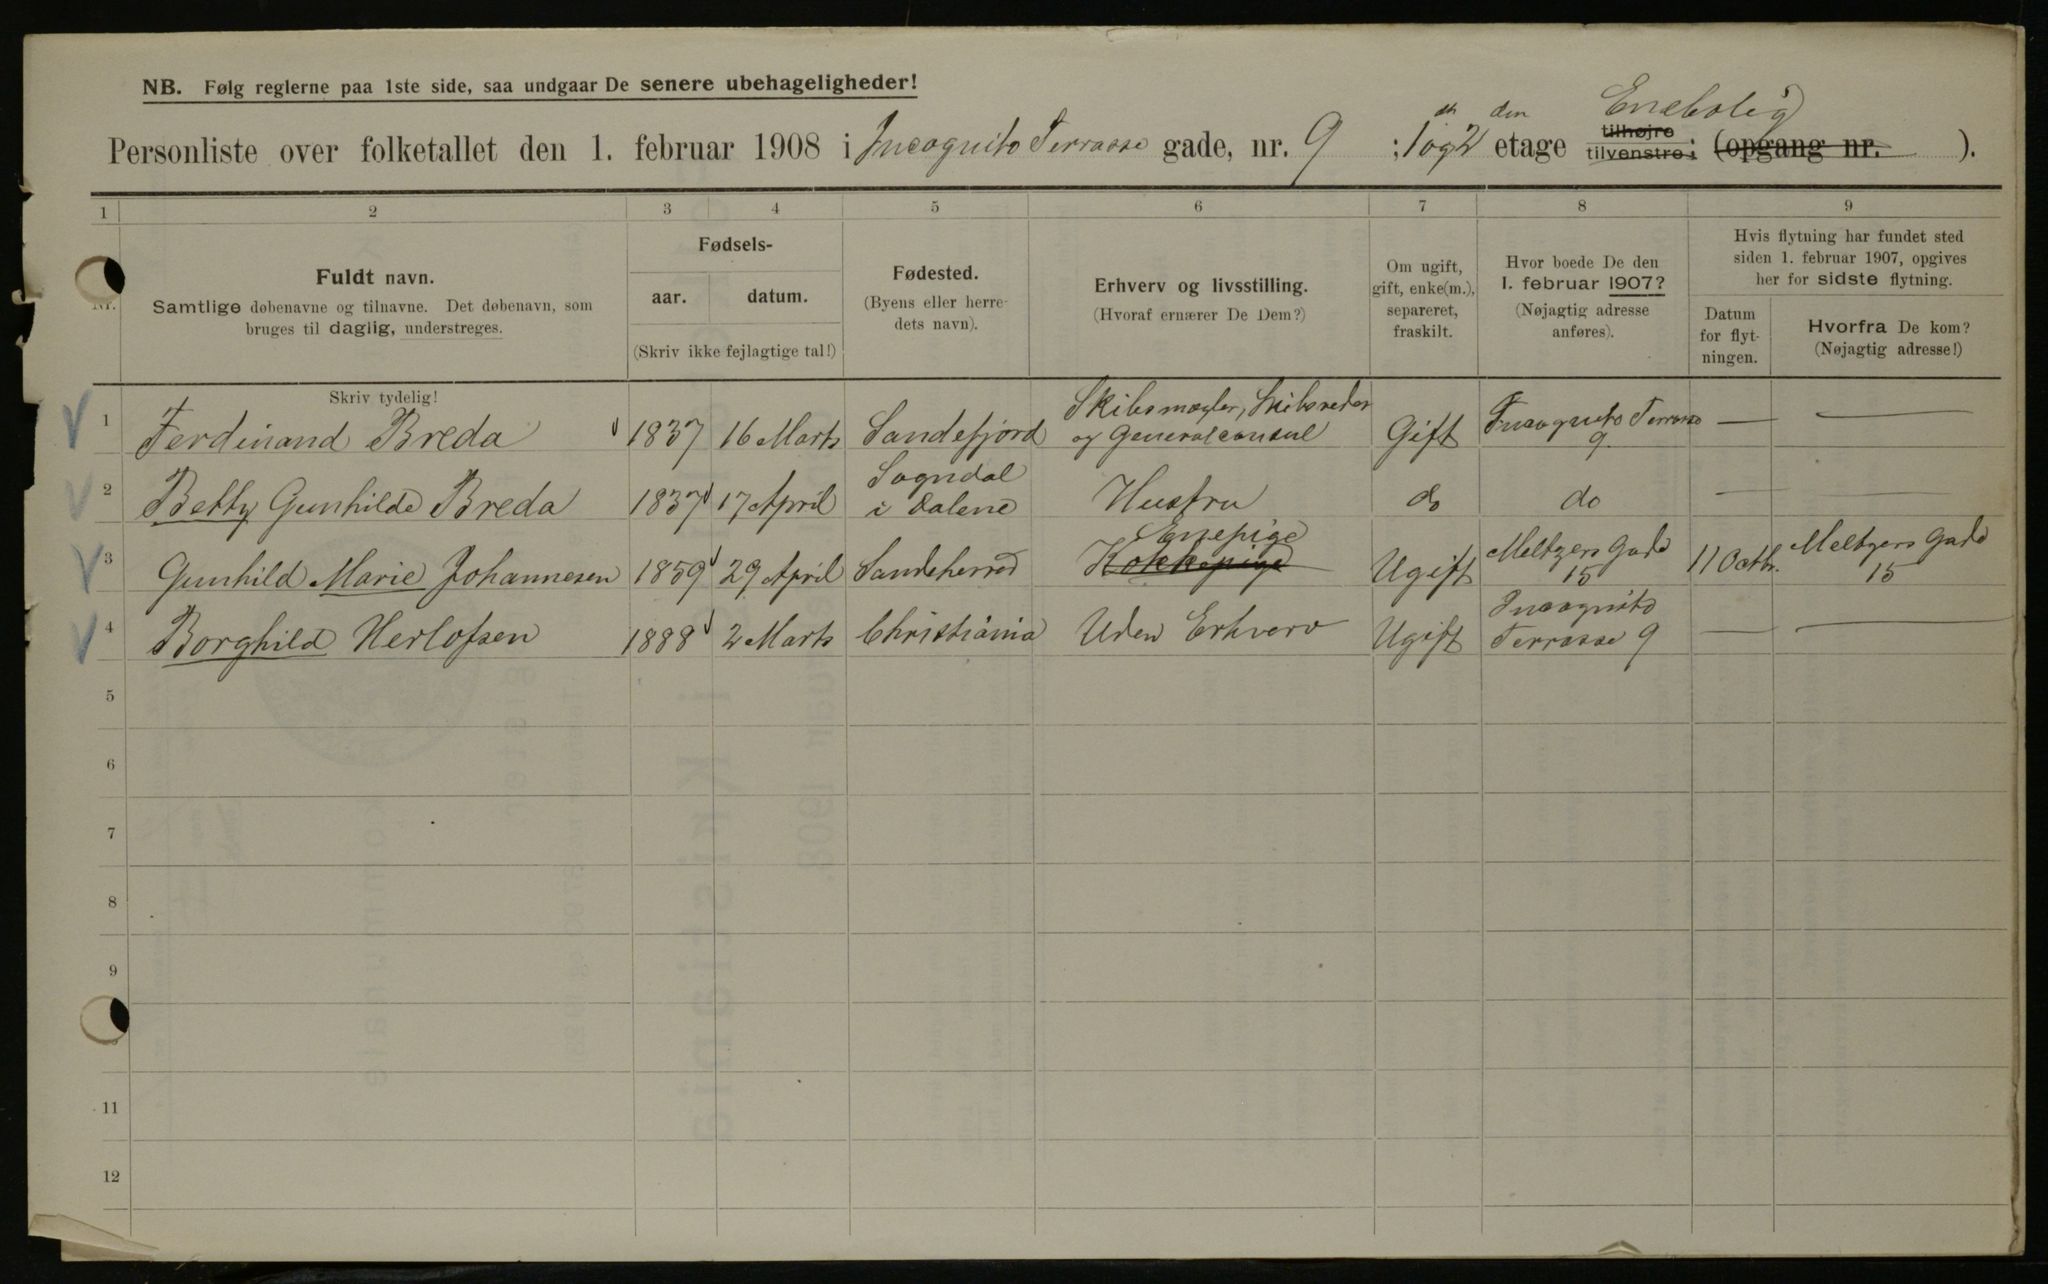 NB. Følg reglerne paa 1ste side, saa undgaar De senere ubehageligheder!
Personliste over folketallet den 1. februar 1908 i Incognito Terrasse gade, nr. 9 ; 1 og 2den etage tilhøjre tilvenstre; Enebolig (opgang nr. ).
1 2 3 4 5 6 7 8 9
Nr.
Fuldt navn.
Samtlige døbenavne og tilnavne. Det døbenavn, som
bruges til daglig, understreges.
Skriv tydelig!
Fødsels-
aar. datum.
(Skriv ikke fejlagtige tal!)
Fødested.
(Byens eller herre-
dets navn).
Erhverv og livsstilling.
(Hvoraf ernærer De Dem?)
Om ugift,
gift, enke(m.),
separeret,
fraskilt.
Hvor boede De den
1. februar 1907?
(Nøjagtig adresse
anføres).
Hvis flytning har fundet sted
siden 1. februar 1907, opgives
her for sidste flytning.
Datum
for flyt-
ningen.
Hvorfra De kom?
(Nøjagtig adresse!)
1 Ferdinand Breda 1837 16 Marts Sandefjord Skibsmægler, Skibsreder og Generalconsul Gift Incognito Terrasse 9. — —
2 Betty Gunhilde Breda 1837 17 April Sogndal i Dalene Hustru do do — —
3 Gunhild Marie Johannesen 1859 29 April Sandeherred Enepige Kokkepige Ugift Meltzers Gade 15 11 Octbr. Meltzers Gade 15
4 Borghild Herlofsen 1888 2 Marts Christiania Uden Erhverv Ugift Incognito Terrasse 9 — —
5
6
7
8
9
11
12